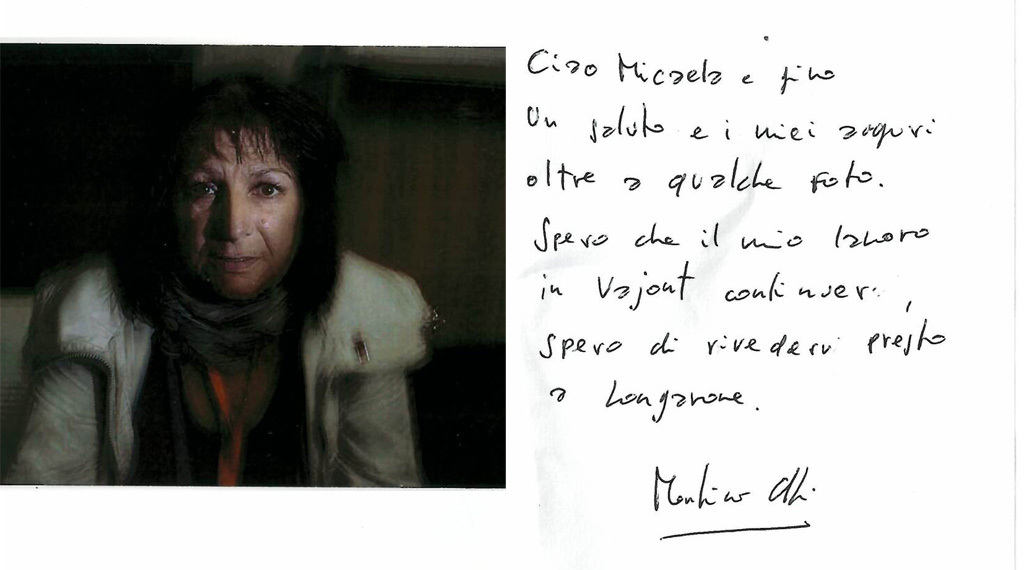 Ciao Micaela e Gino
Un saluto e i miei auguri
oltre a qualche foto.
Spero che il mio lavoro
in Vajont continuerà,
spero di rivedervi presto
a Longarone.